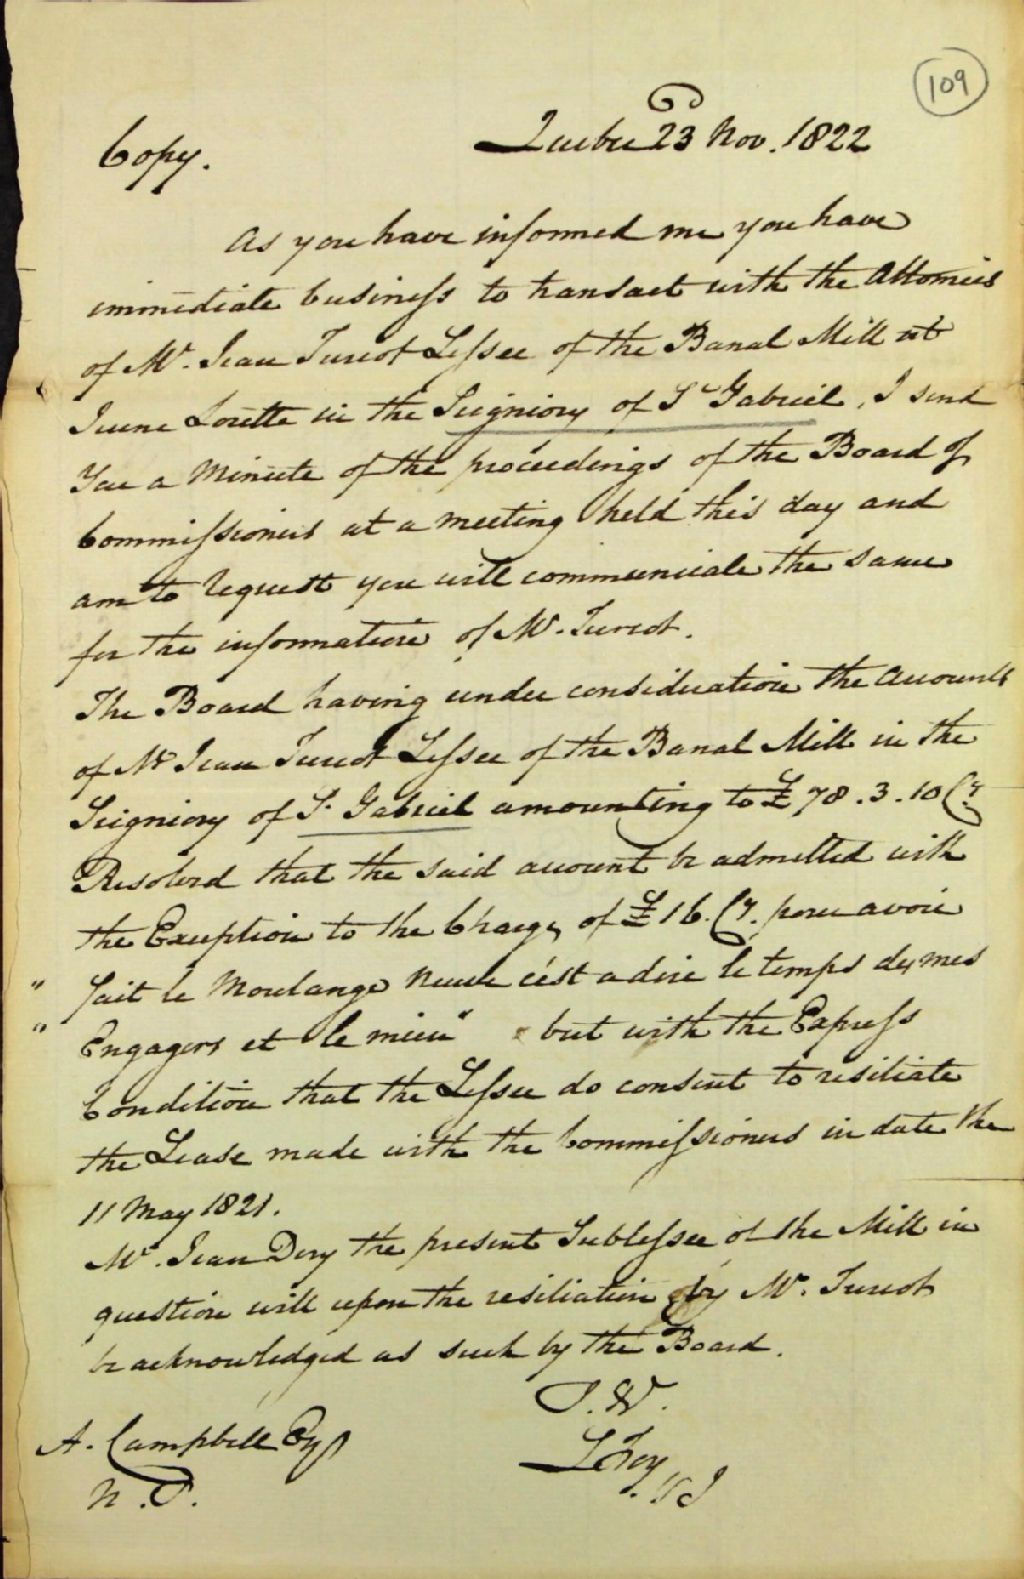 109
Copy.
Quebec 23 Nov. 1822
As you have informed me you have
immediate business to transact with the Attornies
of Mr. Jean Turcot Lessee of the Banal Mill at
Jeune Lorette in the Seigniory of St Gabriel, I send
You a Minute of the proceedings of the Board of
Commissioners at a meeting held this day and
am to request you will communicate the same
for the information of Mr. Turcot.
The Board having under consideration the accounts
of Mr Jean Turcot Lessee of the Banal Mill in the
Seigniory of St. Gabriel amounting to £78.3.10 Cy
Resolved that the said account be admitted with
the Exception to the Charge of £16. Cy. pour avoir
" fait le Moulange neuve c'est a dire le temps de mes
" Engagers et le mien" but with the Express
Condition that the Lessee do consent to resiliate
the Lease made with the Commissioners in date the
11 May 1821.
Mr. Jean Dery the present Sublessee of the Mill in
question will upon the resiliation by Mr. Turcot
be acknowledged as such by the Board.
A. Campbell Esqr
N. P.